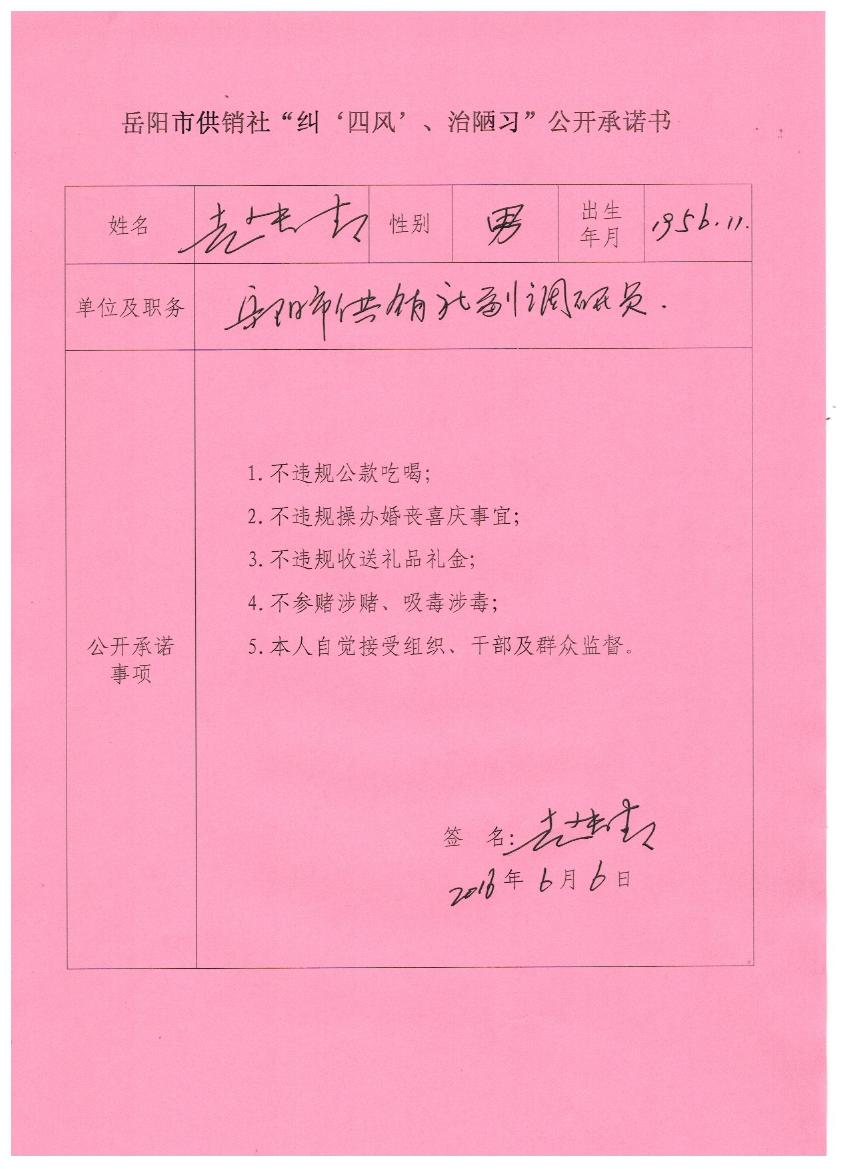 岳阳市供销社“纠‘四风’、治陋习”公开承诺书
姓名 性别 男 出生年月 1956.11.
单位及职务 岳阳市供销社副调研员.
公开承诺事项
1.不违规公款吃喝;
2.不违规操办婚丧喜庆事宜;
3.不违规收送礼品礼金;
4.不参赌涉赌、吸毒涉毒;
5.本人自觉接受组织、干部及群众监督。
签 名:
年6月6日